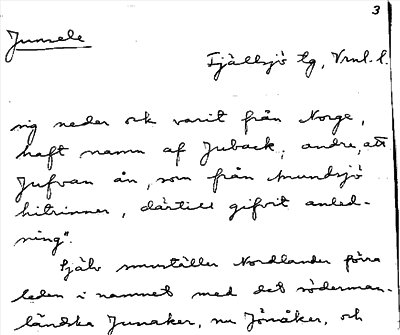 3
Junsele
Fjällsjö tg, Vrnl. l.
sig neder ock varit från Norge,
haft namn af Juback; andre, att
Jufvan ån, som från Mundsjö
hitrinner, därtill gifvit anled-
ning".
Själv smuställer Nordlander förra
leden i namnet med det söderman-
ländska Junaker, nu Jönåker, och